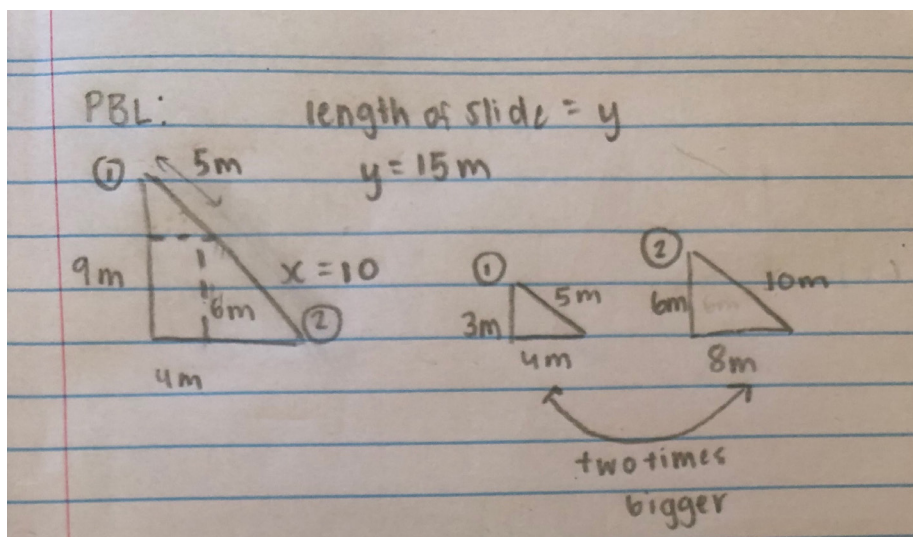 PBL:
length of slide = y
y = 15m
①
5m
9m
x = 10
6m
②
4m
①
5m
3m
4m
②
10m
6m
8m
two times
bigger